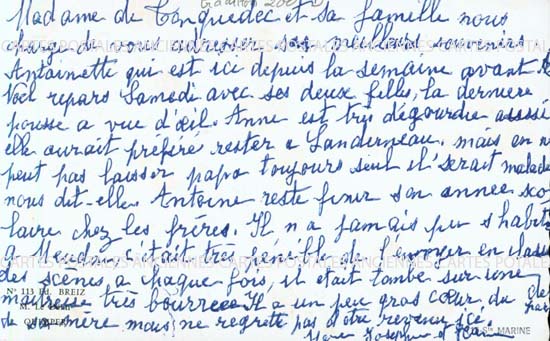 Madame de Tonquedec et sa famille nous
charge de vous adresser ses meilleurs souvenirs
Antoinette qui est ici depuis la semaine avant
Noël repars Samedi avec ses deux filles, la dernière
pousse a vue d'œil. Anne est très dégourdie aussi
elle aurait préféré rester a Landerneau, mais on n
peut pas laisser papa toujours seul il serait malade
nous dit-elle. Antoine reste finir son année sco
laire chez les frères. Il n'a jamais pu s'habit
a c'était très pénible de l'envoyer en classe
des scènes a chaque fois, il était tombé sur une
maitresse très bourrue. Il a un peu gros cœur du
de sa mère mais ne regrette pas d'être revenu ici.
Joseph et
N° 113 ED. BREIZ
QUIMPER
MARINE
CARTES POSTALES ANCIENNES